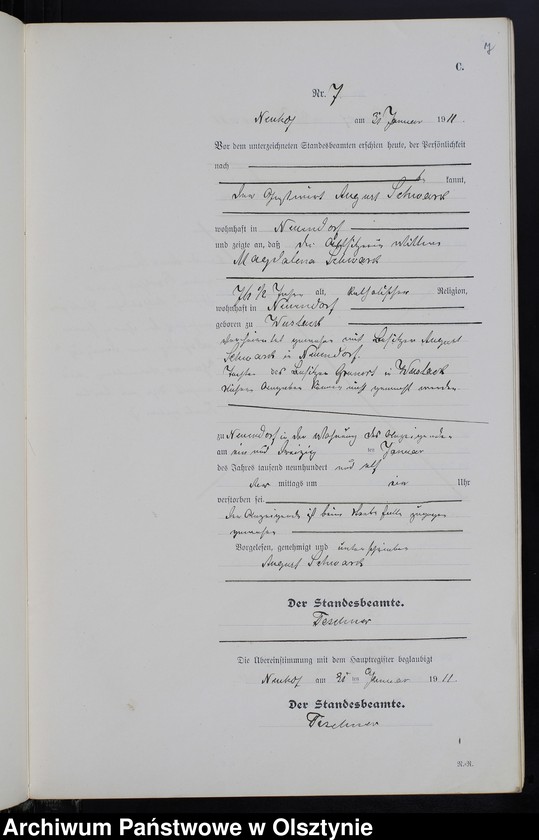 7
C.
Nr. 7
Neuhof am 31 Januar 1911.
Vor dem unterzeichneten Standesbeamten erschien heute, der Persönlichkeit
nach
kannt,
der August Schwark
wohnhaft in Neuendorf
und zeigte an, daß die Wittwe
Magdalena Schwark
Jahre alt, katholischer Religion,
wohnhaft in Neuendorf
geboren zu Wuslack
verheiratet gewesen mit Besitzer August
Schwark in Neuendorf.
Tochter des Besitzer in Wuslack
Angaben können nicht gemacht werden
zu Neuendorf in der Wohnung des Anzeigenden
am ein und dreizig ten Januar
des Jahres tausend neunhundert und elf
mittags um ein Uhr
verstorben sei.
Der Anzeigende ist beim Sterbefalle zugegen
gewesen
Vorgelesen, genehmigt und unterschrieben
August Schwark
Der Standesbeamte.
Teschner
Die Übereinstimmung mit dem Hauptregister beglaubigt
Neuhof am 31 ten Januar 1911.
Der Standesbeamte.
Teschner
Archiwum Państwowe w Olsztynie